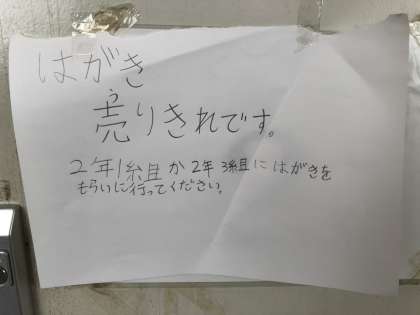 はがき
売りきれです。
2年1組目か2年3組目にはがきを
もらいに行ってください。